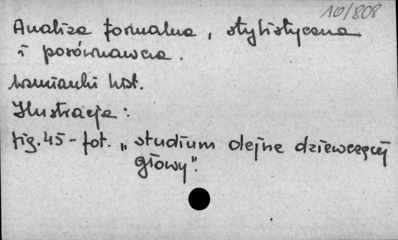 10/808
Analiza formalna, stylistyczna
i porównawcza.
Wzmianki hist.
Ilustracje:
fig. 45 - fot. „studium olejne dziewczęcej
głowy".